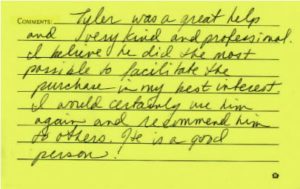 COMMENTS: Tyler was a great help
and very kind and professional.
I believe he did the most
possible to facilitate the
purchase in my best interest.
I would certainly use him
again and recommend him
to others. He is a good
person!